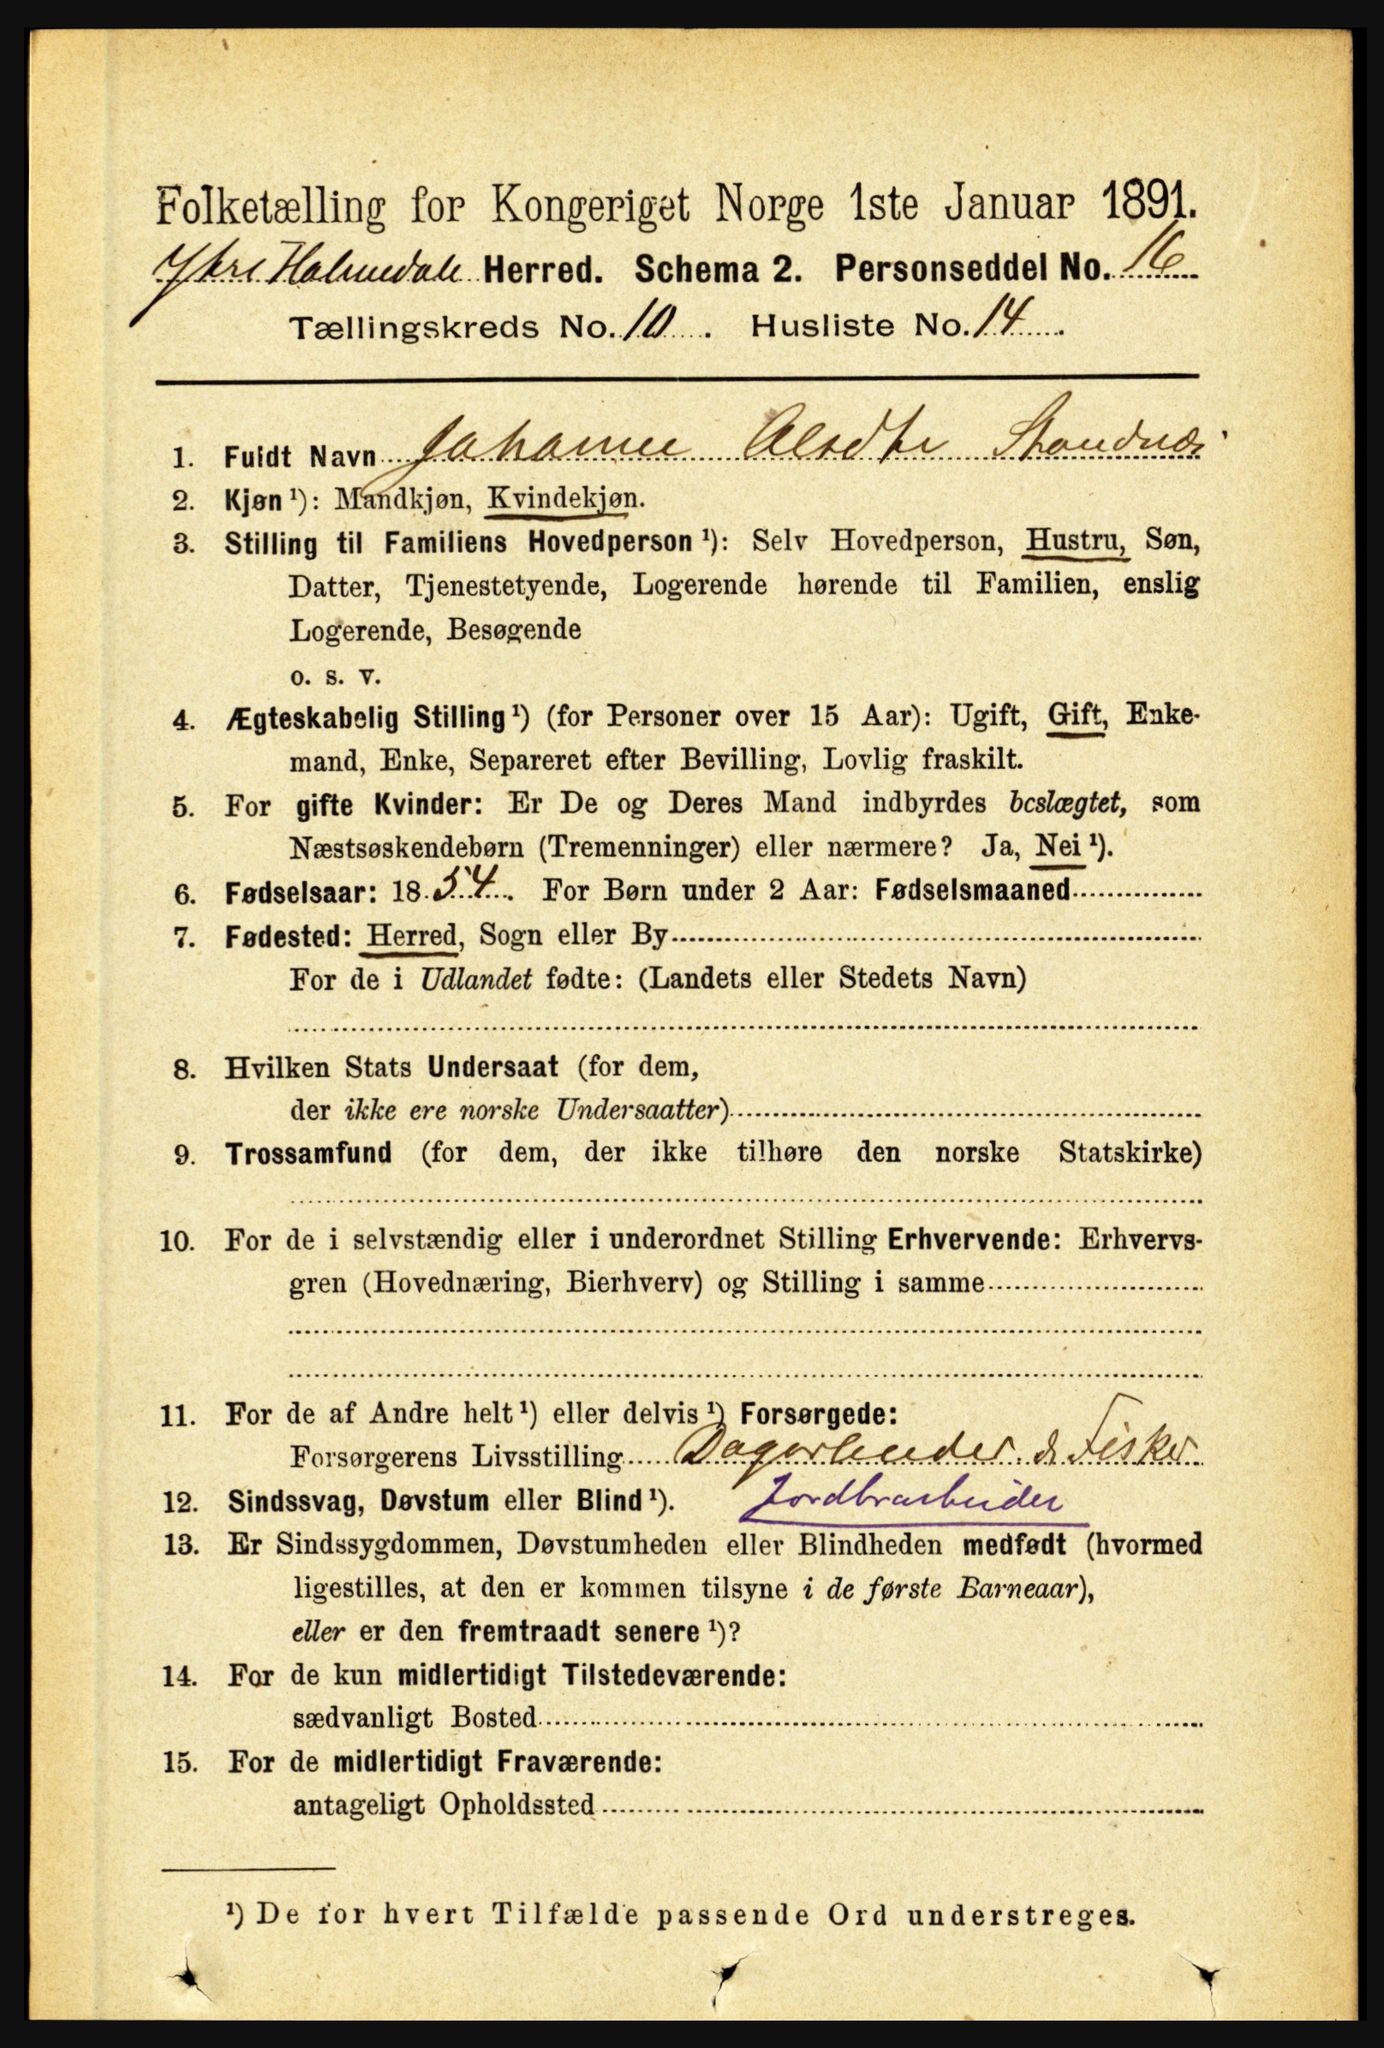 Folketælling for Kongeriget Norge 1ste Januar 1891.
Ytre Holmedals Herred. Schema 2. Personseddel No. 16
Tællingskreds No. 10. Husliste No. 14.
1. Fuldt Navn Johanne Olsdtr Strandnæs
2. Kjøn ¹): Mandkjøn, Kvindekjøn.
3. Stilling til Familiens Hovedperson ¹): Selv Hovedperson, Hustru, Søn,
Datter, Tjenestetyende, Logerende hørende til Familien, enslig
Logerende, Besøgende
o. s. v.
4. Ægteskabelig Stilling ¹) (for Personer over 15 Aar): Ugift, Gift, Enke-
mand, Enke, Separeret efter Bevilling, Lovlig fraskilt.
5. For gifte Kvinder: Er De og Deres Mand indbyrdes beslægtet, som
Næstsøskendebørn (Tremenninger) eller nærmere? Ja, Nei ¹).
6. Fødselsaar: 1854. For Børn under 2 Aar: Fødselsmaaned
7. Fødested: Herred, Sogn eller By
For de i Udlandet fødte: (Landets eller Stedets Navn)
8. Hvilken Stats Undersaat (for dem,
der ikke ere norske Undersaatter)
9. Trossamfund (for dem, der ikke tilhøre den norske Statskirke)
10. For de i selvstændig eller i underordnet Stilling Erhvervende: Erhvervs-
gren (Hovednæring, Bierhverv) og Stilling i samme
11. For de af Andre helt ¹) eller delvis ¹) Forsørgede:
Forsørgerens Livsstilling Dagarbeider & Fisker
12. Sindssvag, Døvstum eller Blind ¹). Jordbrarbeider
13. Er Sindssygdommen, Døvstumheden eller Blindheden medfødt (hvormed
ligestilles, at den er kommen tilsyne i de første Barneaar),
eller er den fremtraadt senere ¹)?
14. For de kun midlertidigt Tilstedeværende:
sædvanligt Bosted
15. For de midlertidigt Fraværende:
antageligt Opholdssted
¹) De for hvert Tilfælde passende Ord understreges.